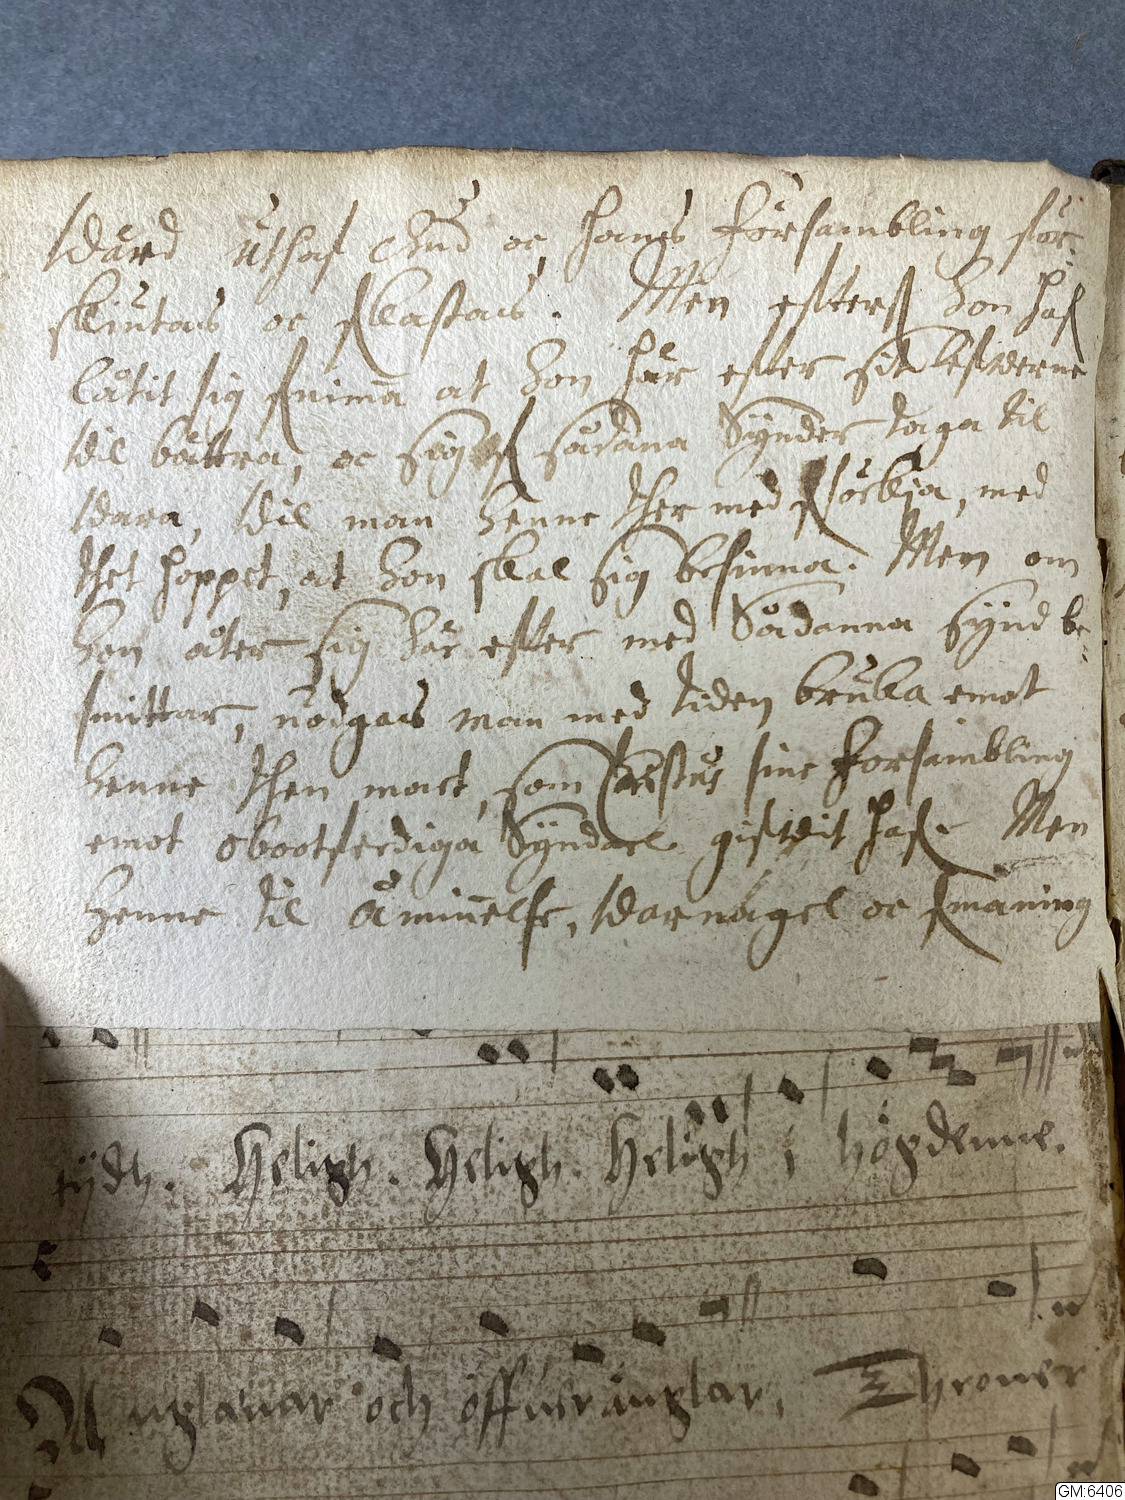 wärd uthaf Gud oc hans Försambling för-
skiutas oc fkastas. Men efterſ hon haf
låtit sig fnimā at hon här efter sit lefwerne
wil bättra, oc sig f sådana Synder taga til
wara, wil man henne ther med fsöckia, med
thet hoppet, at hon skal sig besinna. Men om
hon åter sig här efter med Sådanna synd be-
smittar, nödgas man med tiden bruka emot
henne then mact, som Christus sine Forsambling
emot obootferdiga Syndare gifwit haf. Men
henne til åminnelse, warnagel oc fmaning
tijdh. Heligh. Heligh. Heligh i högdenne.
Änglanar och öffueränglar, Throner
GM:6406